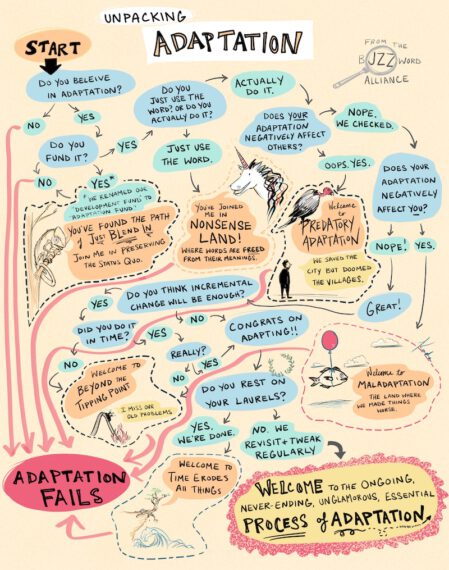 UNPACKING
ADAPTATION
FROM THE
BUZZ WORD
ALLIANCE
START
DO YOU BELEIVE
IN ADAPTATION?
NO
YES
DO YOU
FUND IT?
YES
NO
YES*
*WE RENAMED OUR
"DEVELOPMENT FUND" TO
"ADAPTATION FUND."
YOU'VE FOUND THE PATH
of JUST BLEND IN
JOIN ME IN PRESERVING
THE STATUS QUO.
DO YOU
JUST USE THE
WORD? OR DO YOU
ACTUALLY DO IT?
ACTUALLY
DO IT.
JUST USE
THE WORD.
YOU'VE JOINED
ME IN
NONSENSE
LAND!
WHERE WORDS ARE FREED
FROM THEIR MEANINGS.
DOES YOUR
ADAPTATION
NEGATIVELY AFFECT
OTHERS?
NOPE.
WE CHECKED.
OOPS. YES.
Welcome
to
PREDATORY
ADAPTATION
WE SAVED THE
CITY BUT DOOMED
THE VILLAGES.
DOES YOUR
ADAPTATION
NEGATIVELY
AFFECT YOU?
NOPE!
YES.
GREAT!
Welcome to
MALADAPTATION
THE LAND WHERE
WE MADE THINGS
WORSE.
DO YOU THINK INCREMENTAL
CHANGE WILL BE ENOUGH?
YES
NO
DID YOU DO IT
IN TIME?
YES
NO
REALLY?
NO
YES
CONGRATS ON
ADAPTING!!
WELCOME TO
BEYOND THE
TIPPING POINT
I MISS OUR
OLD PROBLEMS.
DO YOU REST ON
YOUR LAURELS?
YES,
WE'RE DONE.
NO. WE
REVISIT + TWEAK
REGULARLY
WELCOME TO
TIME ERODES
ALL THINGS
ADAPTATION
FAILS
WELCOME TO THE ONGOING,
NEVER-ENDING, UNGLAMOROUS, ESSENTIAL
PROCESS of ADAPTATION.